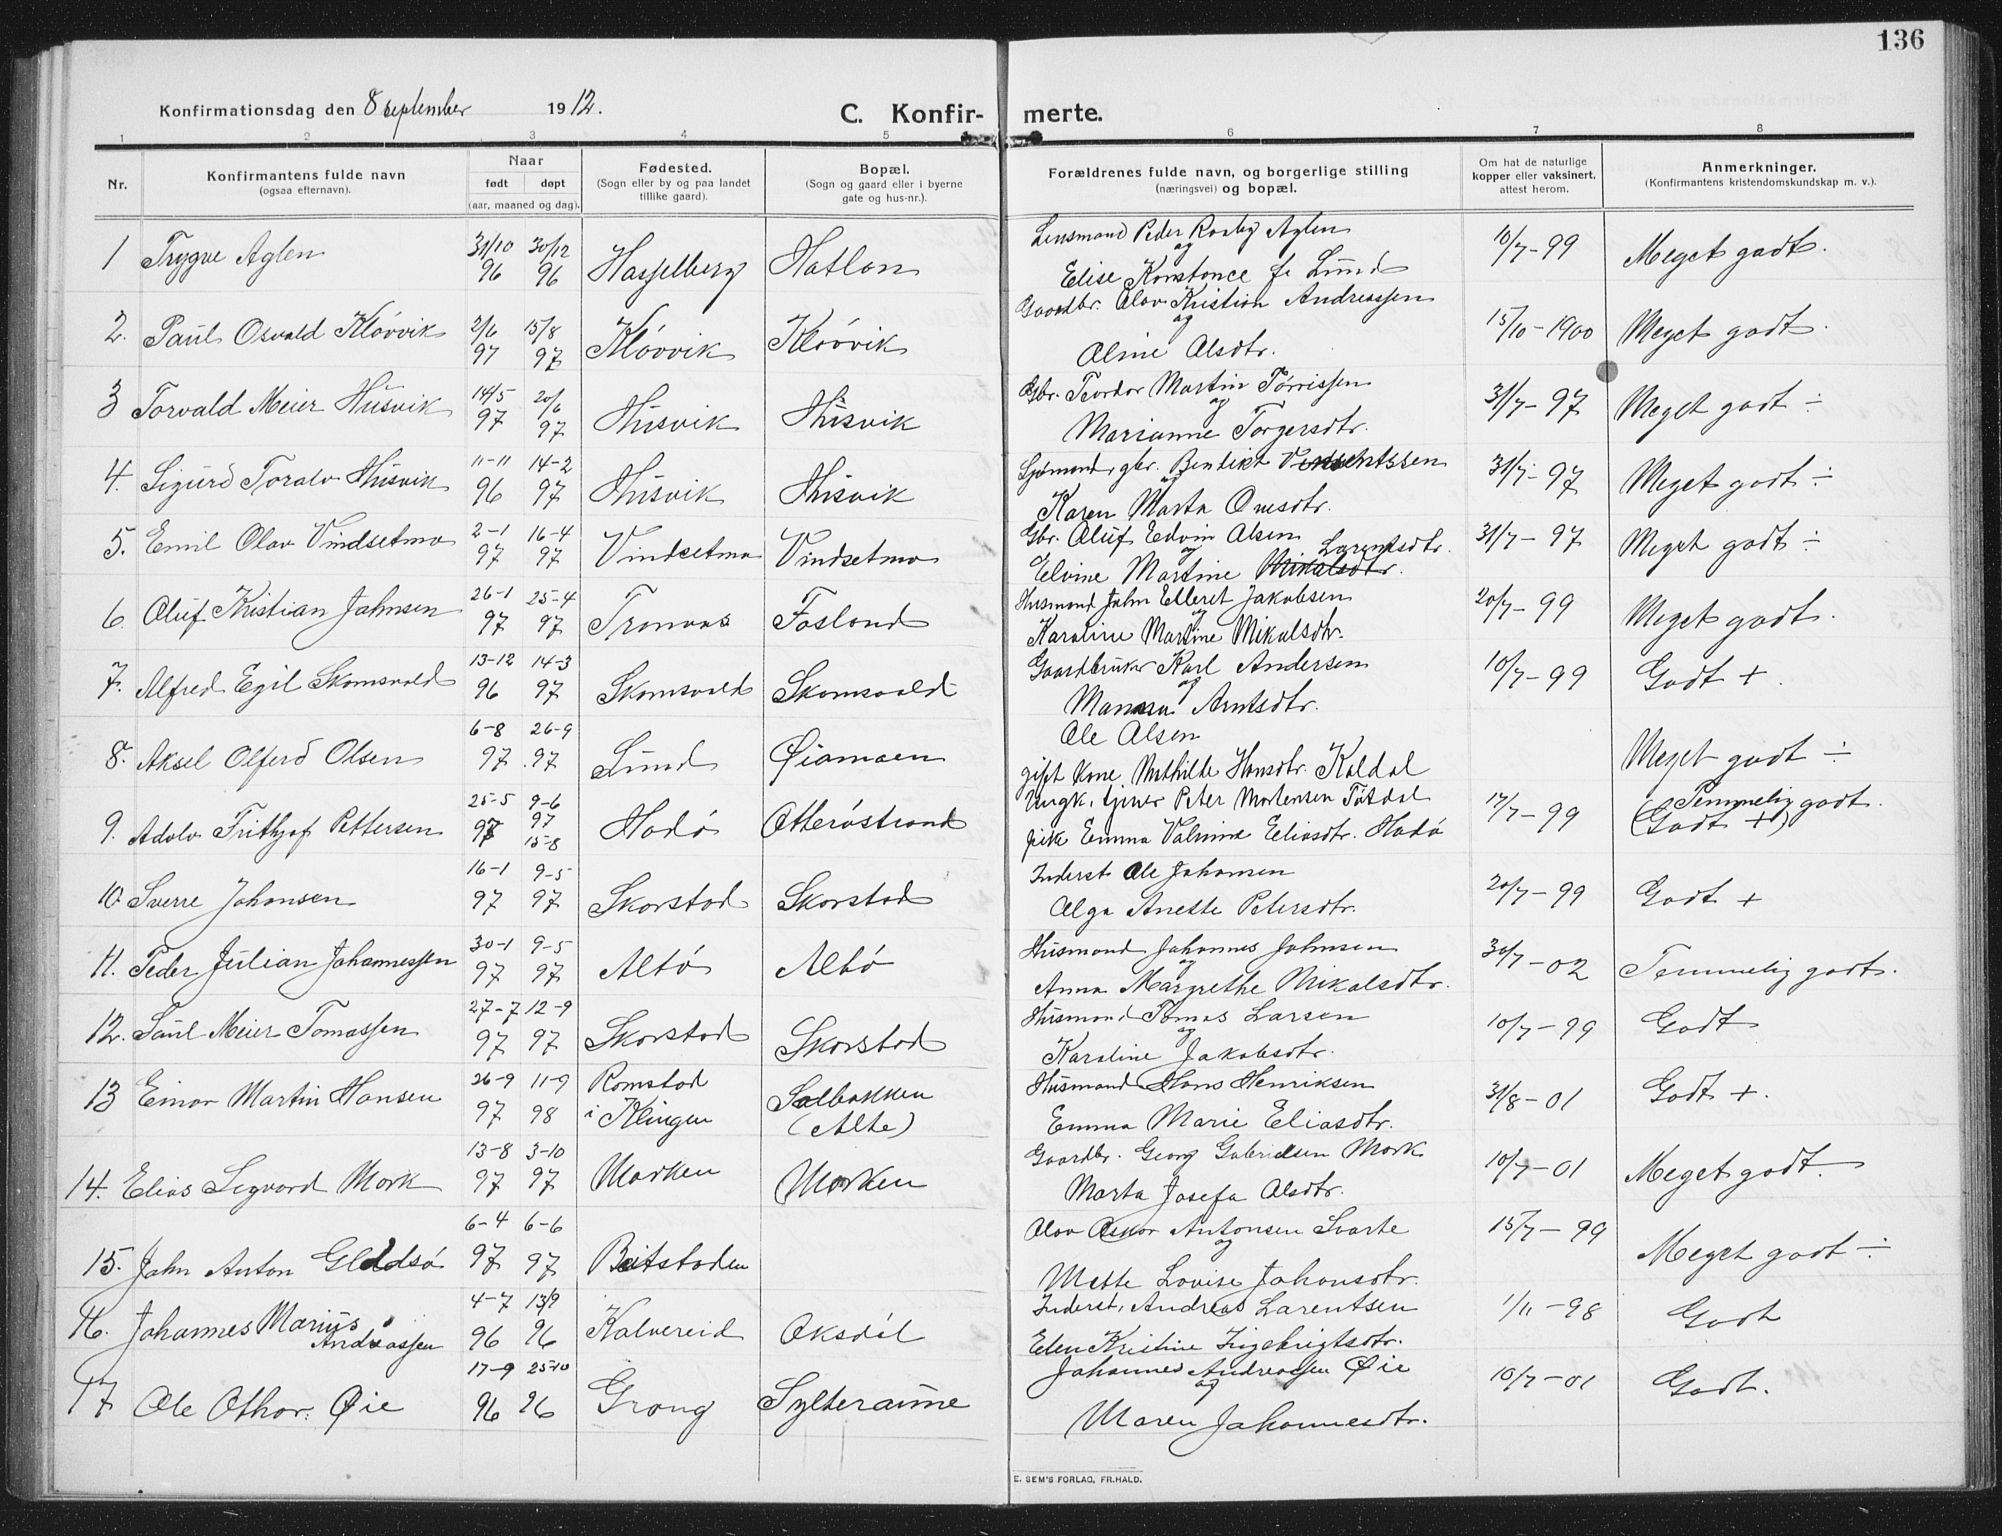 136
Konfirmationsdag den 8 september 1912.
C. Konfir- merte.
1 2 3 4 5 6 7 8
Nr. Konfirmantens fulde navn (ogsaa efternavn). Naar født døpt (aar, maaned og dag). Fødested. (Sogn eller by og paa landet tillike gaard). Bopæl. (Sogn og gaard eller i byerne gate og hus-nr.). Forældrenes fulde navn, og borgerlige stilling (næringsvei) og bopæl. Om hat de naturlige kopper eller vaksinert, attest herom. Anmerkninger. (Konfirmantens kristendomskundskap m. v.).
1 Trygve Aglen 31/10 96 30/12 96 Hasselberg Hatlan Lensmand Peder Roaby Aglen og Elise Konstance f. Lund 10/7-99 Meget godt.
2. Paul Osvald Kløvvik 2/6 97 15/8 97 Kløvvik Kløvvik Gaardbr. Olav Kristian Andreassen og Oline Olsdtr. 15/10-1900 Meget godt.
3 Torvald Meier Husvik 14/5 97 20/6 97 Husvik Husvik Gbr. Teodor Martin Tørrissen og Marianne Torgersdtr. 31/7-97 Meget godt ÷
4. Sigurd Toralv Husvik 11-11 96 14-2 97 Husvik Husvik Sjømand, gbr. Bendikt Vensentssen og Karen Marta Ovesdtr. 31/7-97 Meget godt ÷
5. Emil Olav Vindsetmo 2-1 97 16-4 97 Vindsetmo Vindsetmo Gbr. Oluf Edvin Olsen og Elvine Martine Mikalsdtr. Larentsdtr. 31/7-97 Meget godt ÷
6. Oluf Kristian Johnsen 26-1 97 25-4 97 Tronvas Fosland Husmand John Elleret Jakobsen og Karoline Martine Mikalsdtr. 20/7-99 Meget godt.
7. Alfred Egil Skomsvold 13-12 96 14-3 97 Skomsvold Skomsvold Gaardbruker Karl Andersen og Manna Arntsdtr. 10/7-99 Godt +.
8. Aksel Olferd Olsen 6-8 97 26-9 97 Lund Øiamoen Ole Olsen gift Kone Mathilte Hansdtr. Kaldal Meget godt ÷
9. Adolv Frithjof Pettersen 25-5 97 9-6 97 15-8 Hodø Otterøstrand Ungk. tjener Peter Mortensen Tøtdal pike Emma Valmine Eliasdtr. Hodø 17/7-99 Temmelig godt. (Godt +)
10. Sverre Johansen 16-1 97 9-5 97 Skorstad Skorstad Inderst Ole Johansen Olga Anette Petersdtr. 20/7-99 Godt +
11. Peder Julian Johannessen 30-1 97 9-5 97 Altø Altø Husmand Johannes Johnsen og Anna Margrethe Mikalsdtr. 30/7-02 Temmelig godt.
12. Paul Meier Tomassen 27-7 97 12-9 97 Skorstad Skorstad Husmand Tomas Larsen og Karoline Jakobsdtr. 10/7-99 Godt
13 Einar Martin Hansen 26-9 97 11-9 98 Romstad i Klingen Solbakken (Alte) Husmand Hans Henriksen Emma Marie Eliasdtr. 31/8-01 Godt +.
14. Elias Sigvard Mork 13-8 97 3-10 97 Marken Marken Gaardbr. Georg Gabrielsen Mork Marta Josefa Olsdtr. 10/7-01 Meget godt.
15. John Anton Gladsø 6-4 97 6-6 97 Beitstaden Olav Oskar Antonsen Svarte og Mette Lovise Johansdtr. 15/7-99 Meget godt ÷
16. Johannes Marius Andreassen 4-7 96 13/9 96 Kalvereid Oksdøl Inderst, Andreas Larentsen Elen Kristine Ingebrigtsdtr. 1/11-98 Godt
17 Ole Othor. Øie 17-9 96 25-10 96 Grong Sylteraune Johannes Andreassen Øie og Maren Johannesdtr. 10/7-01 Godt.
E. SEM'S FORLAG, FR.HALD.